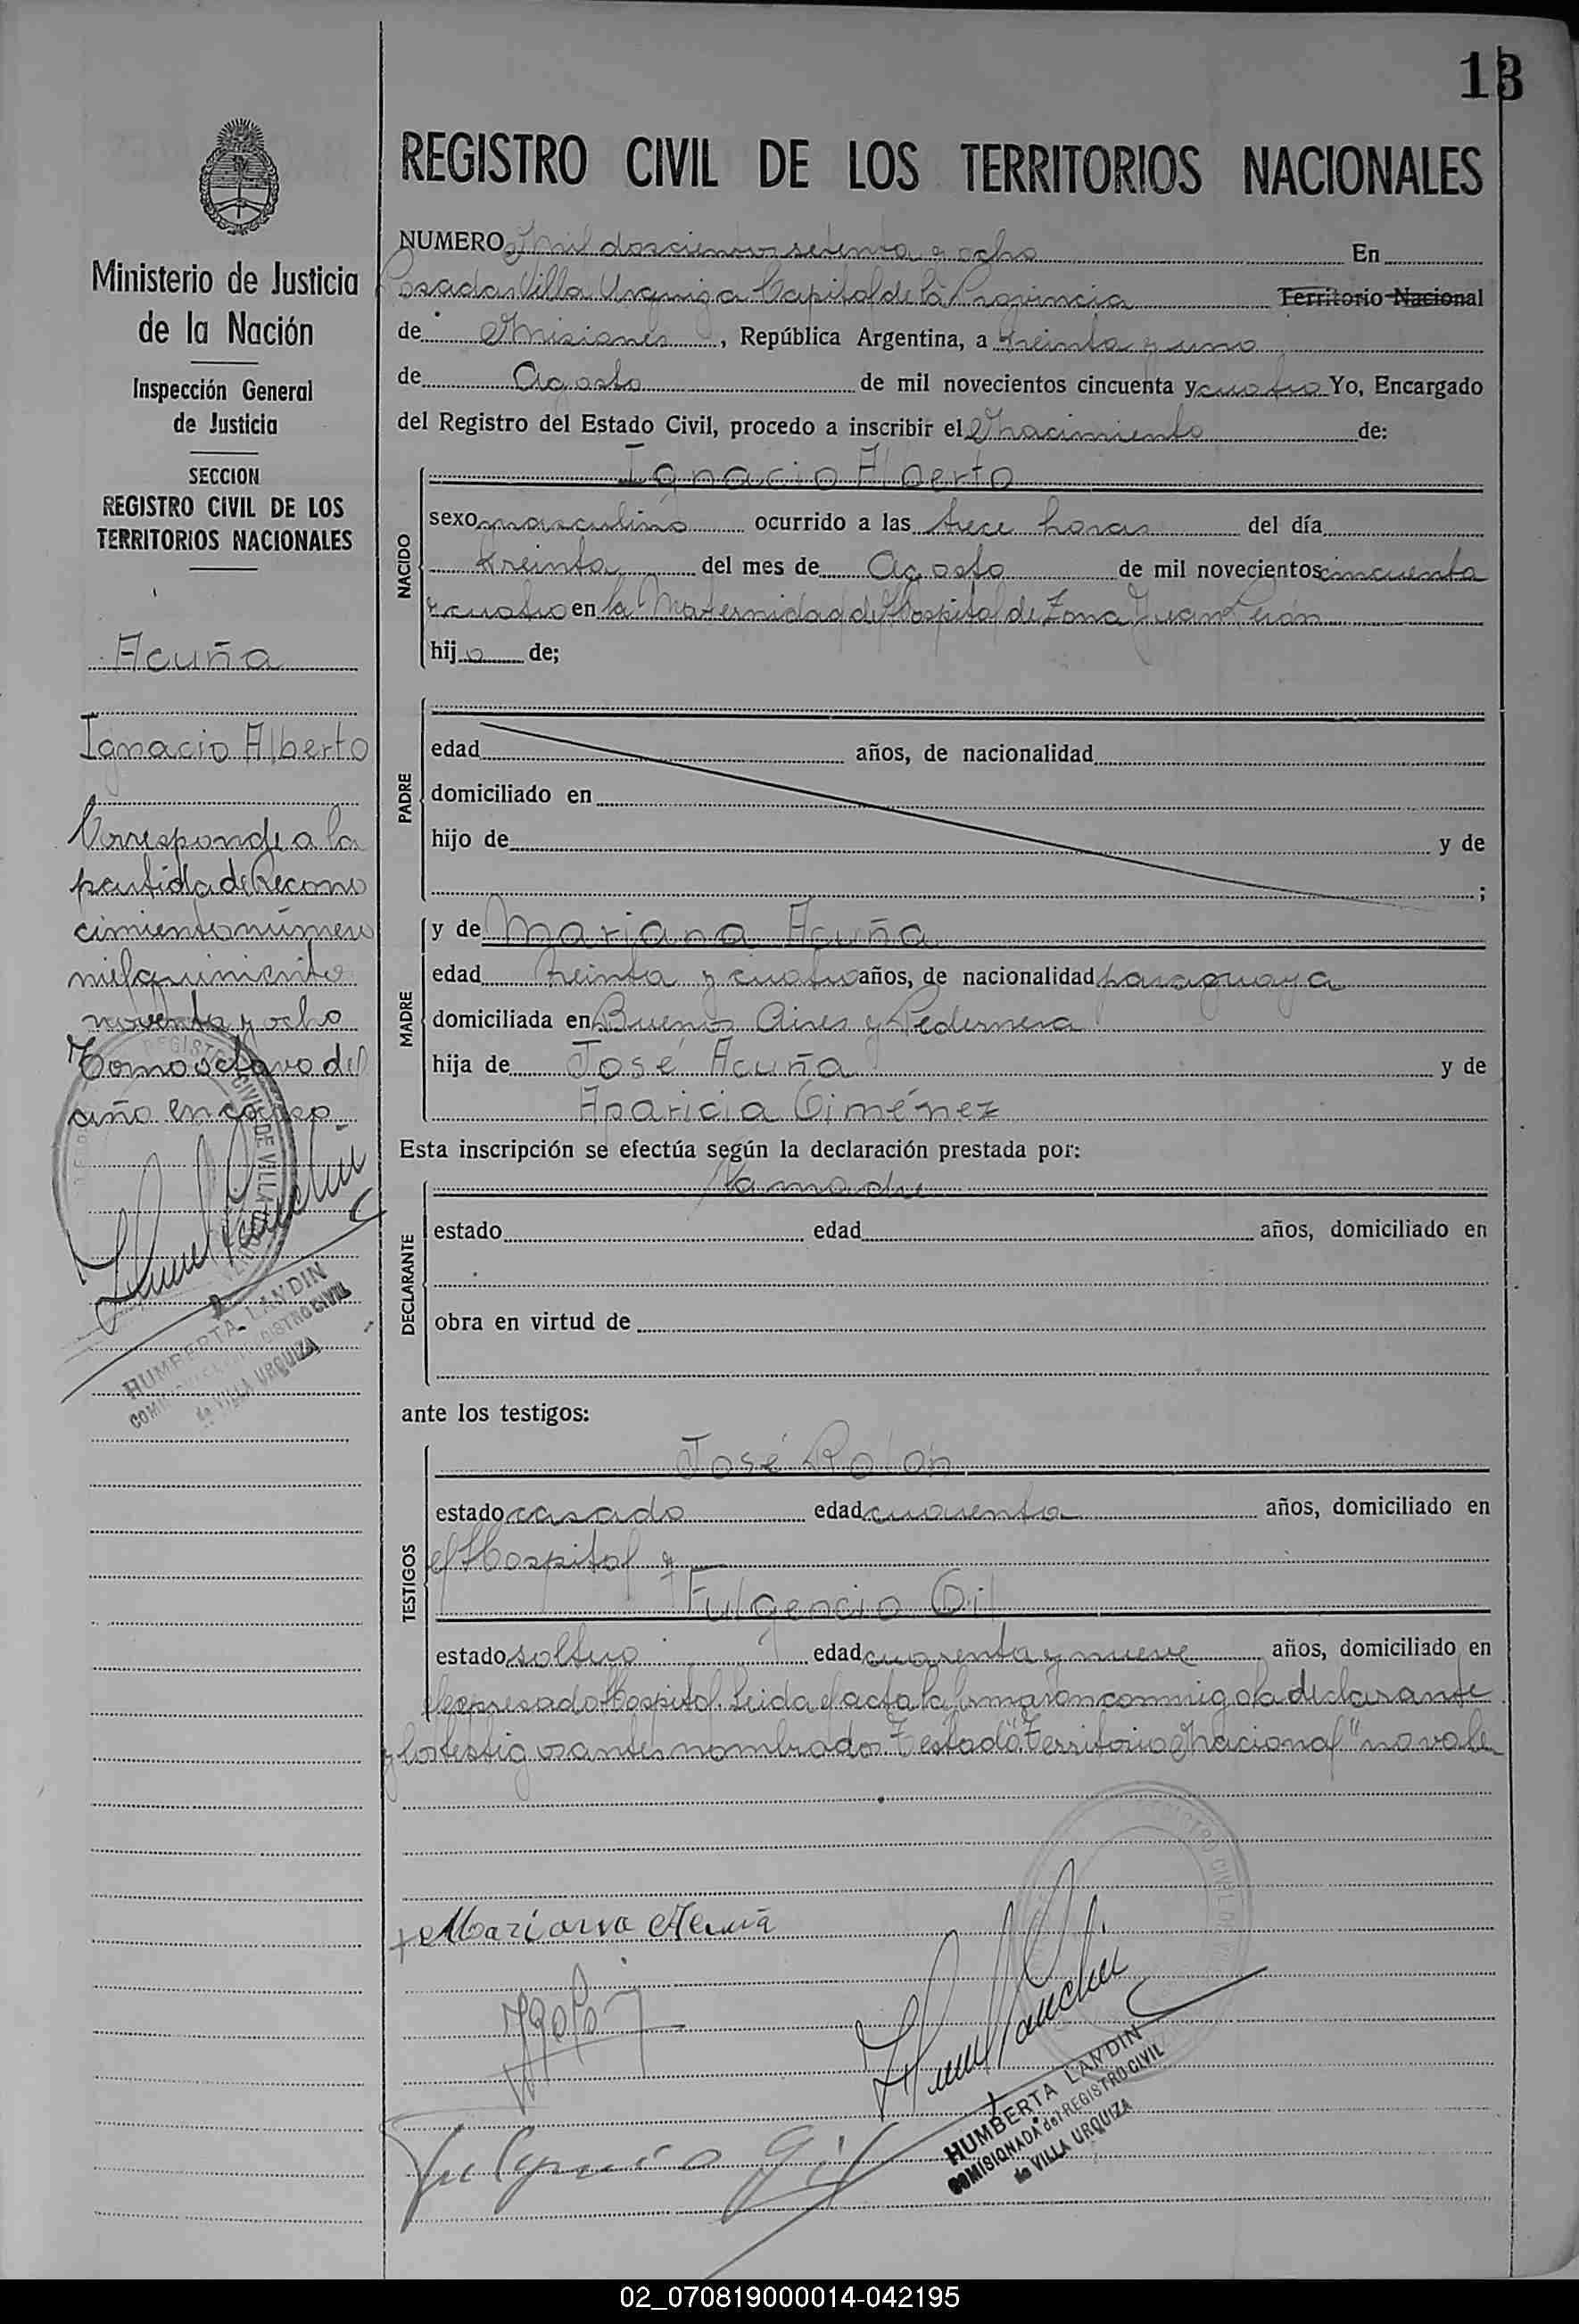 13
REGISTRO CIVIL DE LOS TERRITORIOS NACIONALES
NUMERO Mil doscientos setenta y ocho En
Posadas Villa Urquiza Capital de la Provincia Territorio Nacional
de Misiones, República Argentina, a treinta y uno
de Agosto de mil novecientos cincuenta y cuatro Yo, Encargado
del Registro del Estado Civil, procedo a inscribir el Nacimiento de:
Ignacio Alberto
NACIDO
sexo masculino ocurrido a las trece horas del día
treinta del mes de Agosto de mil novecientos cincuenta
y cuatro en la Maternidad del Hospital de Zona Juan Perón
hijo de;
PADRE
edad años, de nacionalidad
domiciliado en
hijo de y de
;
MADRE
y de Mariana Acuña
edad treinta y cuatro años, de nacionalidad paraguaya
domiciliada en Buenos Aires y Pedernera
hija de José Acuña y de
Aparicia Giménez
Esta inscripción se efectúa según la declaración prestada por:
La madre
DECLARANTE
estado edad años, domiciliado en
obra en virtud de
ante los testigos:
José Rolon
TESTIGOS
estado casado edad cuarenta años, domiciliado en
el Hospital y
Fulgencio Gil
estado soltero edad cuarenta y nueve años, domiciliado en
el expresado Hospital. Leida el acta la firmaron conmigo la declarante
y los testigos antes nombrados. Testado "Territorio Nacional" no vale
Mariana Acuña
Fulgencio Gil
HUMBERTA LANDIN
COMISIONADA del REGISTRO CIVIL
de VILLA URQUIZA
Ministerio de Justicia
de la Nación
Inspección General
de Justicia
SECCION
REGISTRO CIVIL DE LOS
TERRITORIOS NACIONALES
Acuña
Ignacio Alberto
Corresponde a la
partida de Recono
cimiento número
mil quinientos
noventa y ocho
Tomo octavo del
año en curso
HUMBERTA LANDIN
de VILLA URQUIZA
02_070819000014-042195